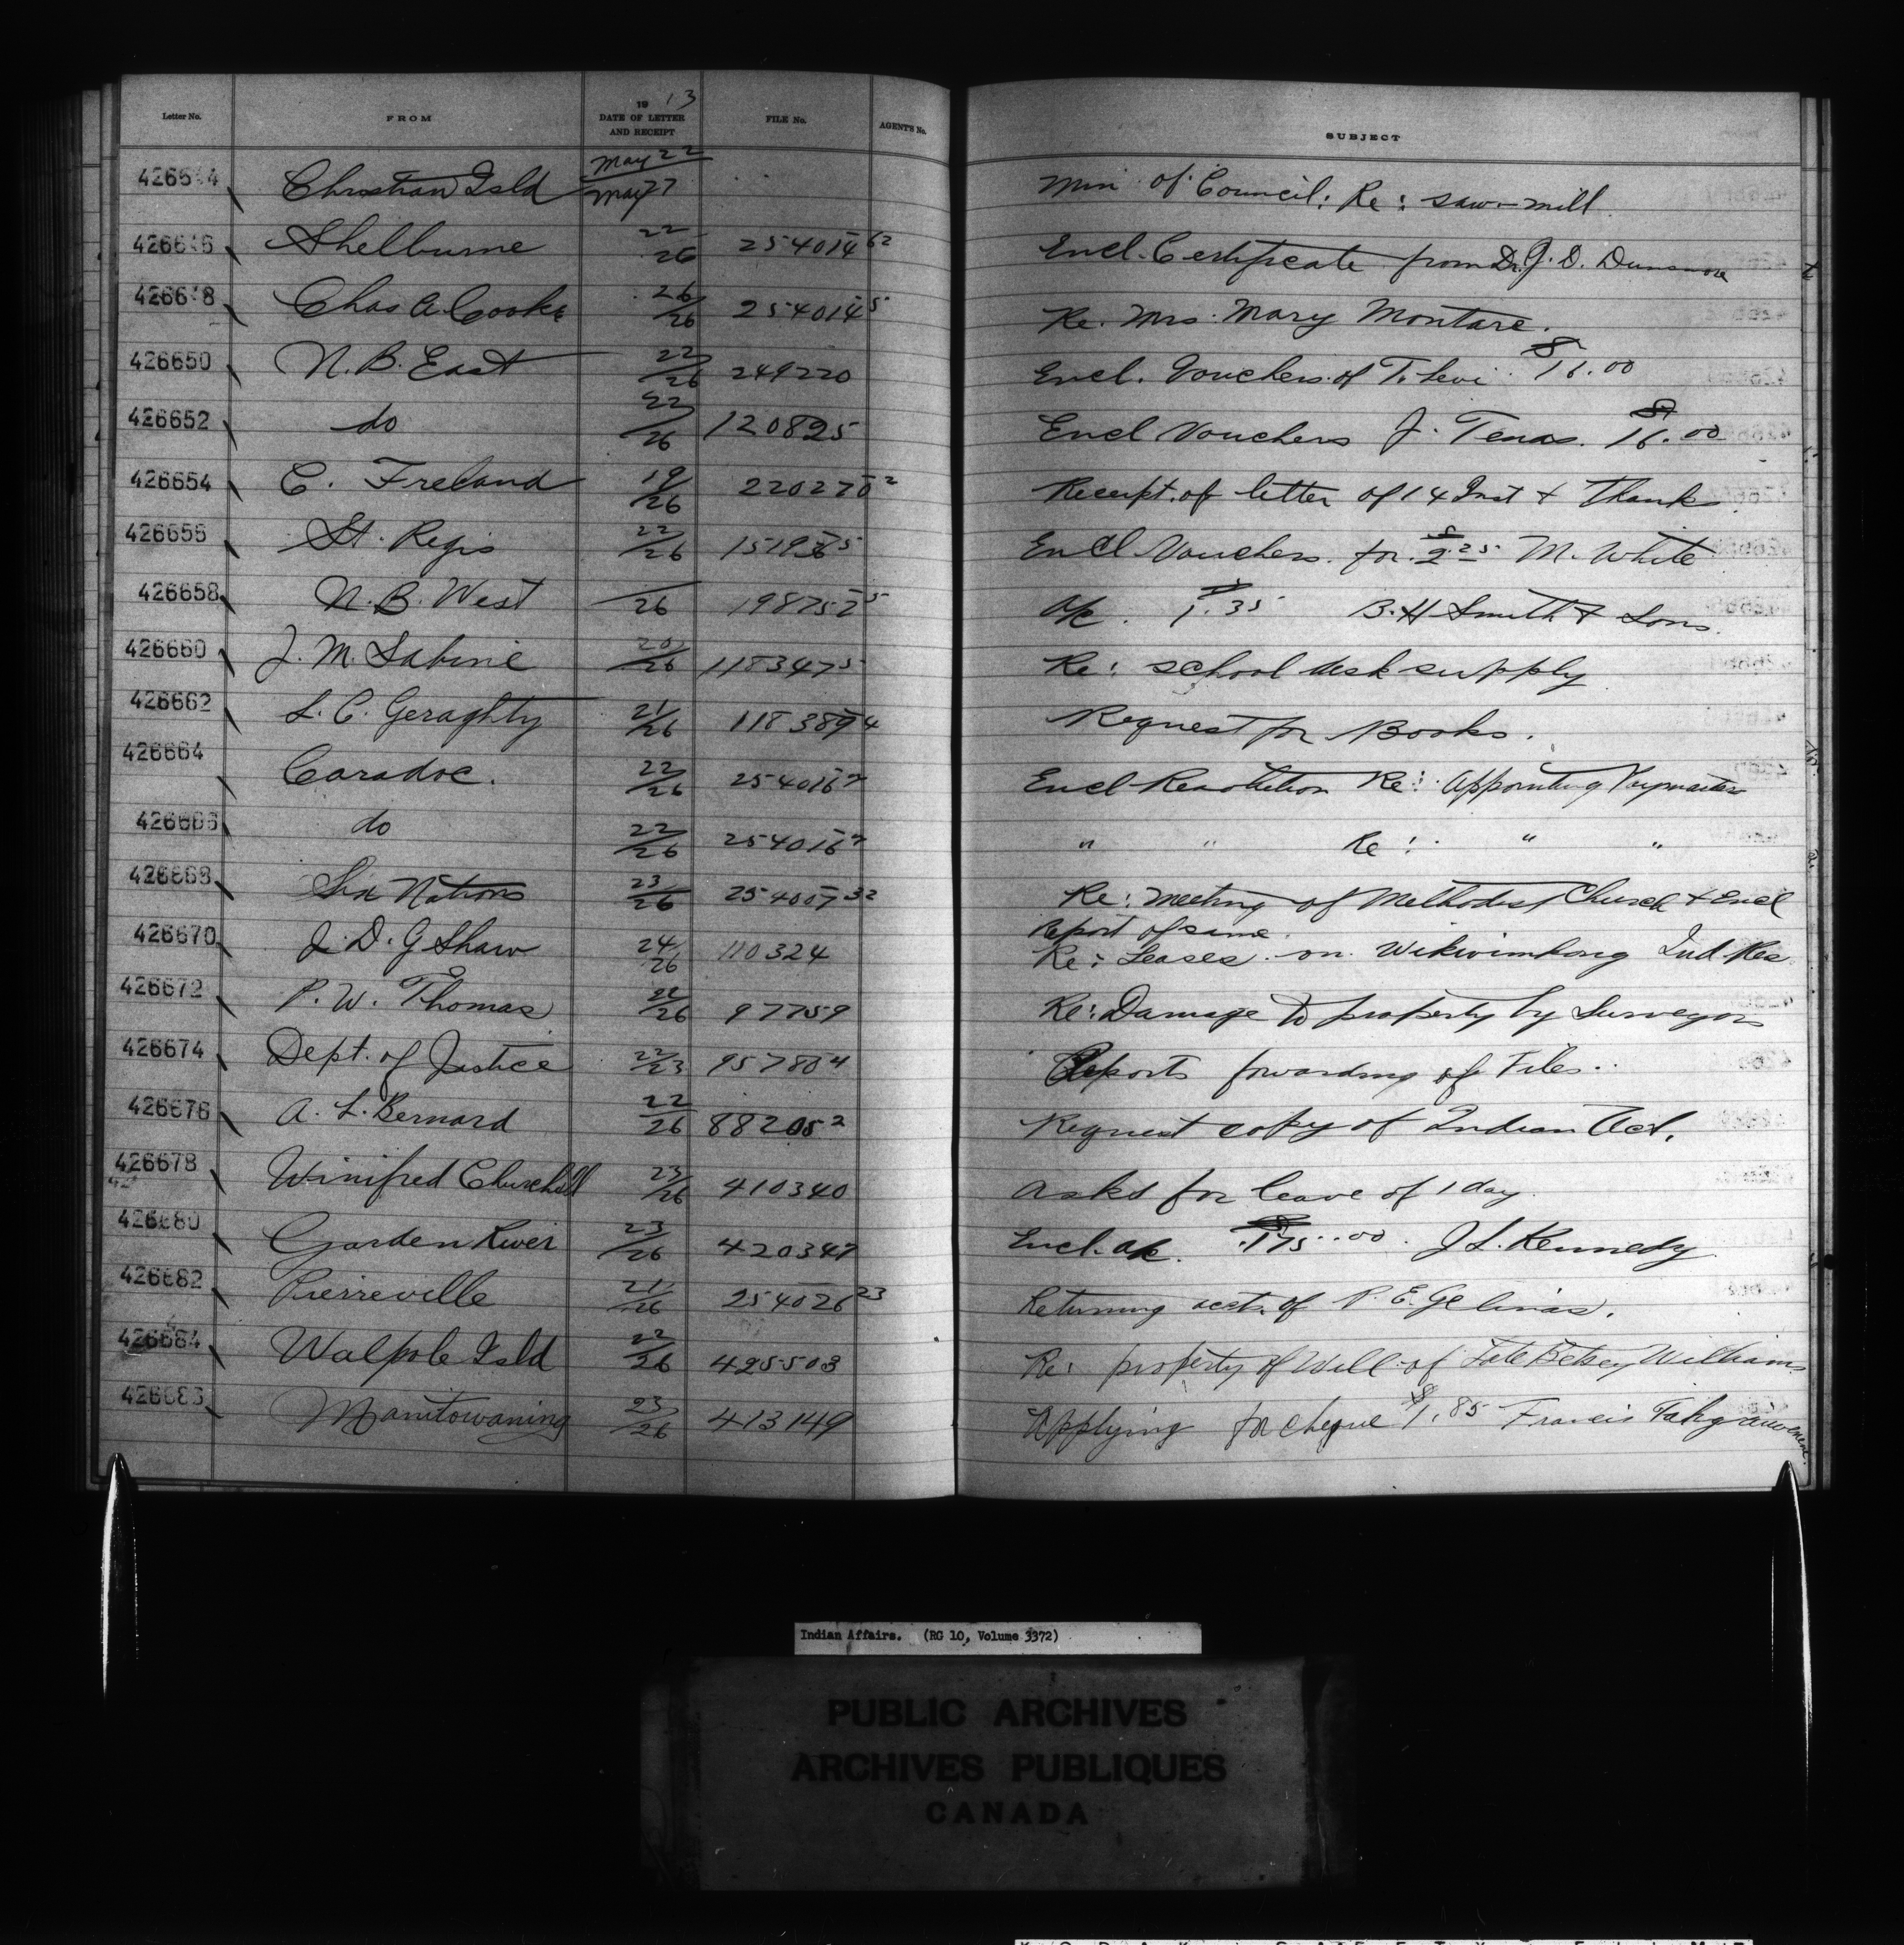 Letter No. FROM 1913 DATE OF LETTER AND RECEIPT FILE No. AGENT'S No. SUBJECT
426644 Christian Isld May 22 / May 27 Min of Council: Re: saw-mill
426646 Shelburne 22/26 254014 62 Encl. Certificate from Dr. J. D. Dunsmore
426648 Chas A. Cooke 26/26 254014 5 Re. Mrs. Mary Montare.
426650 N. B. East 22/26 249220 Encl. Vouchers of T. Levi $16.00
426652 do 22/26 120825 Encl Vouchers J. Tenas. $16.00
426654 C. Freland 19/26 220270 2 Receipt of letter of 14 Inst & Thanks
426656 St. Regis 22/26 151936 5 Encl Vouchers for $2.25 M. White
426658 N. B. West /26 198752 5 a/c. $1.35 B. H Smith & Sons.
426660 J. M. Sabine 20/26 118347 5 Re: school desk supply
426662 L. C. Geraghty 21/26 118389 4 Request for Books.
426664 Caradoc. 22/26 254016 2 Encl Resolution Re: Appointing Paymasters
426666 do 22/26 254016 2 " " Re: " "
426668 Six Nations 23/26 254007 32 Re: Meeting of Methodist Church & Encl
Report of same.
426670 J. D. G Shaw 24/26 110324 Re: Leases on Wikwimkong Ind. Res.
426672 P. W. Thomas 22/26 97759 Re: Damage to property by Surveyors
426674 Dept. of Justice 22/23 95780 4 Reports forwarding of Files.
426676 A. L. Bernard 22/26 88205 2 Request copy of Indian Act.
426678 Winifred Churchill 23/26 410340 Asks for leave of 1 day.
426680 Garden River 23/26 420347 Encl. a/c. $175.00. J L. Kennedy
426682 Pierreville 21/26 254026 23 Returning acct. of P. E. Gelinas.
426684 Walpole Isld 22/26 425503 Re: property of Will of Late Betsey Williams
426683 Manitowaning 23/26 413149 Applying for cheque $1.85 Francis
Indian Affairs. (RG 10, Volume 3372)
PUBLIC ARCHIVES
ARCHIVES PUBLIQUES
CANADA